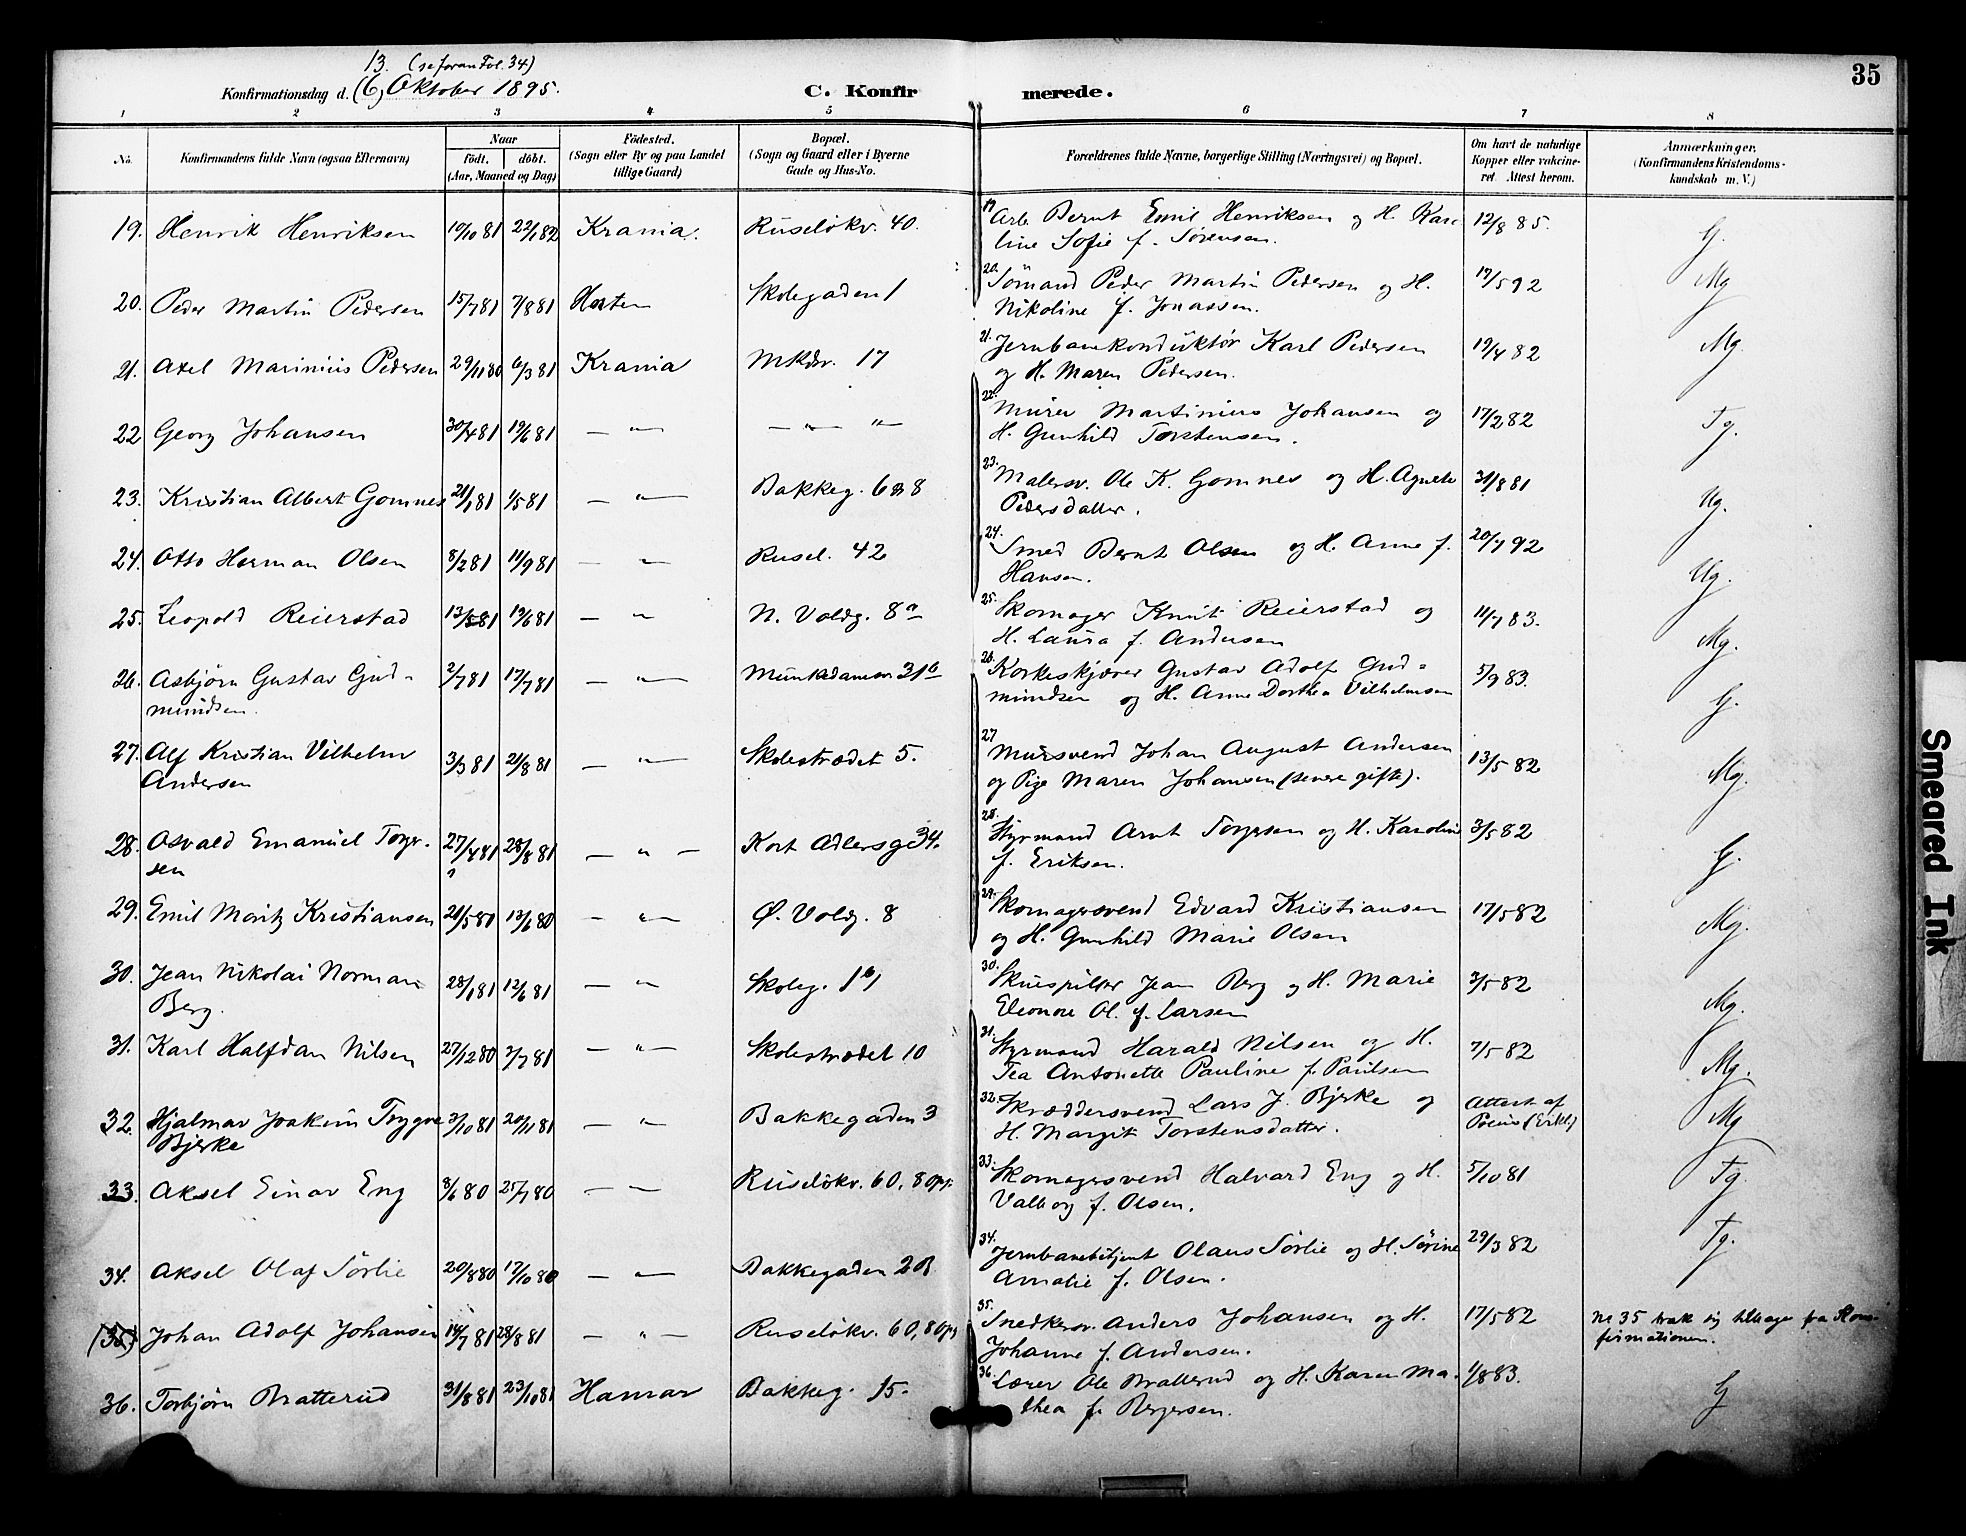 13. (se foran Fol. 34)
Konfirmationsdag d. (6) Oktober 1895.
C. Konfirmerede.
35
1 2 3 4 5 6 7 8
No.
Konfirmandens fulde Navn (ogsaa Efternavn)
Naar
födt. döbt.
(Aar, Maaned og Dag)
Födested.
(Sogn eller By og paa Landet
tillige Gaard)
Bopæl.
(Sogn og Gaard eller i Byerne
Gade og Hus-No.
Forældrenes fulde Navne, borgerlige Stilling (Næringsvei) og Bopæl.
Om havt de naturlige
Kopper eller vakcine-
ret. Attest herom.
Anmærkninger.
(Konfirmandens Kristendoms-
kundskab m. V.)
19. Henrik Henriksen 10/10 81 22/1 82 Krania. Ruseløkv. 40. 19. Arb. Bernt Emil Henriksen og H. Karo-
line Sofie f. Sørensen. 12/8 85. G.
20. Peder Martin Pedersen 15/7 81 7/8 81 Horten Skolegaden 1 20. Sömand Peder Martin Pedersen og H.
Nikoline f. Jonassen. 19/5 92 Mg
21. Axel Marinius Pedersen 29/11 80 6/3 81 Krania Mkdv. 17 21. Jernbanekonduktør Karl Pedersen
og H. Maren Pedersen. 19/4 82 Mg.
22 Georg Johansen 30/4 81 19/6 81 — " — — " — " — 22. Murer Martinius Johansen og
H. Gunhild Torstensen. 17/2 82 Tg.
23. Kristian Albert Gomnes 21/1 81 1/5 81 — " — Bakkeg. 6 8 23. Malersv. Ole K. Gomnes og H. Agnete
Pedersdatter. 31/8 81 Ug.
24. Otto Herman Olsen 8/2 81 11/9 81 — " — Rusel. 42 24. Smed Bernt Olsen og H. Anne f.
Hansen. 20/7 92 Ug.
25. Leopold Reierstad 13/5 81 19/6 81 — " — N. Voldg. 8a 25. Skomager Knut Reierstad og
H. Laura f. Andersen 11/7 83. Mg.
26. Asbjørn Gustav Gud-
mundsen. 2/7 81 17/7 81 — " — Munkedamsv. 31b 26. Korkeskjærer Gustav Adolf Gud-
mundsen og H. Anne Dorthea Vilhelmsen 5/9 83. G.
27. Alf Kristian Vilhelm
Andersen 3/3 81 21/8 81 — " — Skolestrædet 5. 27 Mursvend Johan August Andersen
og Pige Maren Johansen (senere gifte). 13/5 82 Mg.
28. Osvald Emanuel Torger-
sen 27/4 81 28/8 81 — " — Kort Adlersg. 34. 28. Styrmand Arnt Torgersen og H. Karoline
f. Eriksen. 3/5 82 G.
29. Emil Moritz Kristiansen 21/5 80 13/6 80 — " — Ø. Voldg. 8 29. Skomagersvend Edvard Kristiansen
og H. Gunhild Marie Olsen 17/5 82 Mg.
30. Jean Nikolai Norman
Berg. 28/1 81 12/6 81 — " — Skoleg. 1b 30. Skuespiller Jean Berg og H. Marie
Eleonore Ol. f. Larsen 3/5 82 Mg.
31. Karl Halfdan Nilsen 27/12 80 3/7 81 — " — Skolestrædet 10 31. Styrmand Harald Nilsen og H.
Tea Antonette Pauline f. Paulsen 7/5 82 Mg.
32. Hjalmar Joakim Trygve
Bjerke 3/10 81 20/11 81 — " — Bakkegaden 3 32. Skræddersvend Lars J. Bjerke og
H. Margit Torstensdatter. Attest af
(Erkl.) Mg
33. Aksel Einar Eng 8/6 80 25/7 80 — " — Ruseløkv. 60, 8 opg. 33. Skomagersvend Halvard Eng og H.
Valborg f. Olsen. 5/10 81 Tg.
34. Aksel Olaf Sørlie 20/8 80 17/10 80 — " — Bakkegaden 2B 34. Jernbanebetjent Olaus Sørlie og H. Sørine
Amalie f. Olsen. 29/3 82 Tg.
(35) Johan Adolf Johansen 14/7 81 28/8 81 — " — Ruseløkv. 60, 8 opg 35. Snedkersv. Anders Johansen og H.
Johanne f. Andersen. 17/5 82 No 35 trak sig tilbage fra Kon-
firmationen.
36. Torbjørn Bratterud 31/8 81 23/10 81 Hamar Bakkeg. 15. 36. Lærer Ole Bratterud og H. Karen Ma-
thea f. Bergersen. 1/8 83. G
Smeared Ink